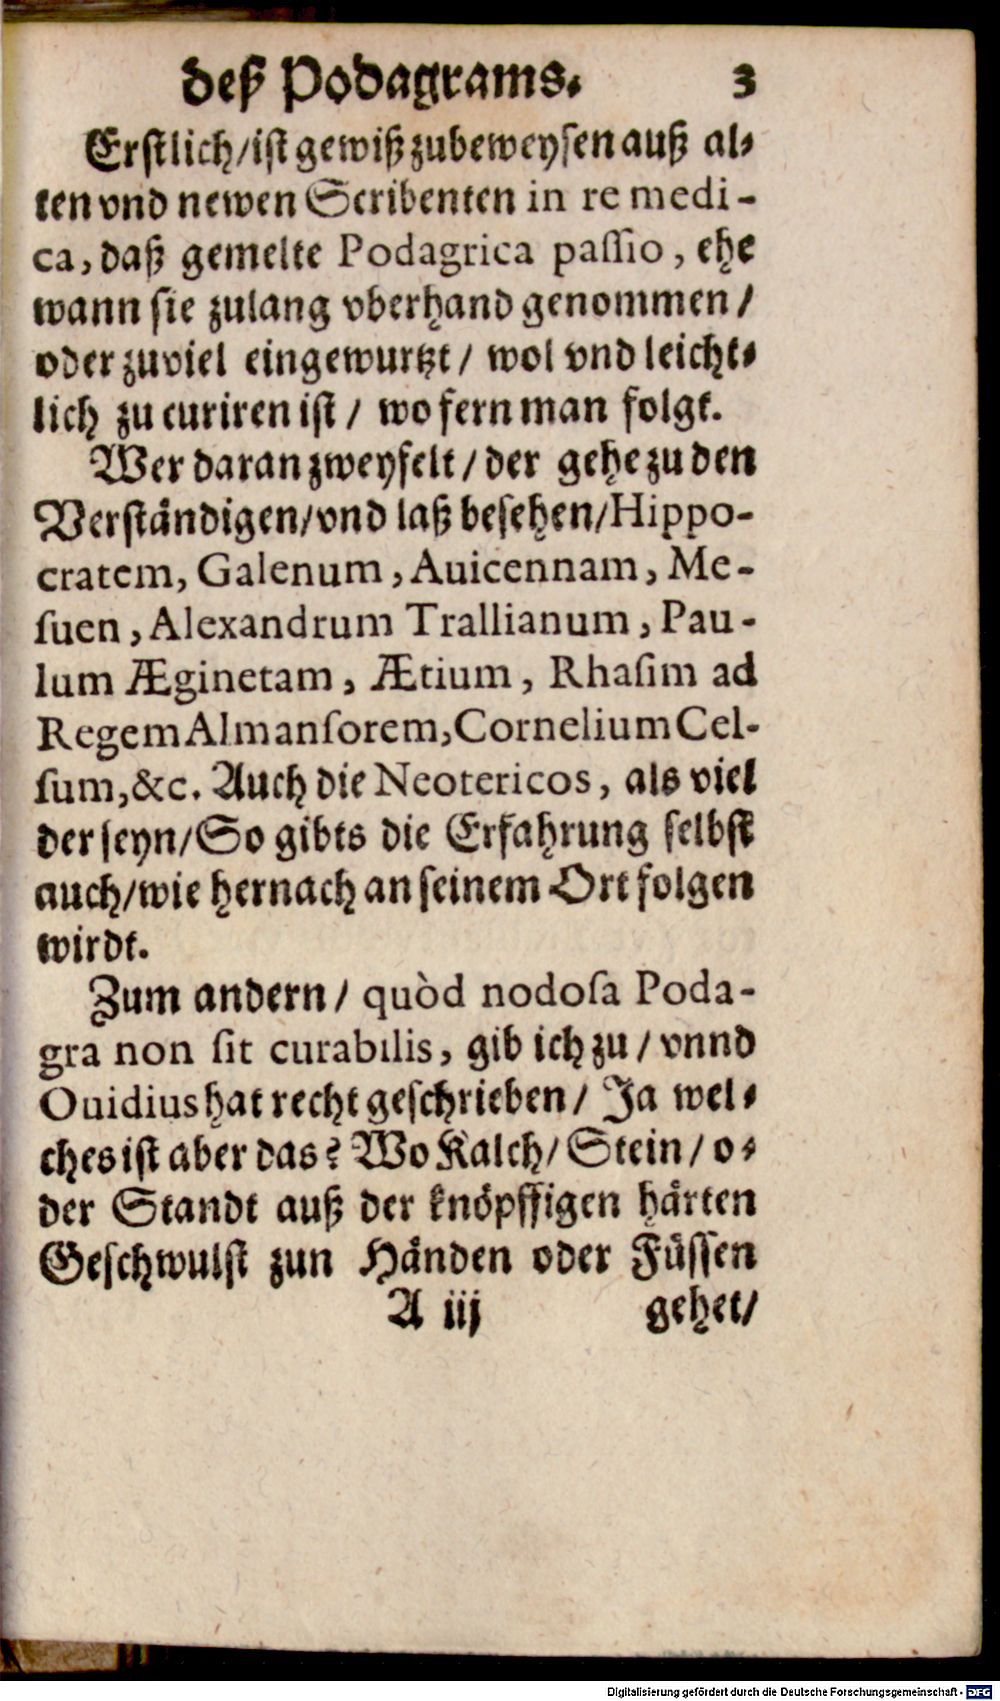 deß Podagrams. 3
Erstlich/ist gewiß zubeweysen auß al⸗
ten vnd newen Scribenten in re medi-
ca, daß gemelte Podagrica passio, ehe
wann sie zulang vberhand genommen/
oder zuviel eingewurtzt/ wol vnd leicht⸗
lich zu curiren ist/ wo fern man folgt.
Wer daran zweyfelt/der gehe zu den
Verständigen/vnd laß besehen/Hippo-
cratem, Galenum, Auicennam, Me-
ſuen, Alexandrum Trallianum, Pau-
lum Æginetam, Ætium, Rhaſim ad
Regem Almanſorem, Cornelium Cel-
ſum, &c. Auch die Neotericos, als viel
der seyn/So gibts die Erfahrung selbst
auch/wie hernach an seinem Ort folgen
wirdt.
Zum andern/ quòd nodoſa Poda-
gra non ſit curabilis, gib ich zu/ vnnd
Ouidius hat recht geschrieben/ Ja wel⸗
ches ist aber das? Wo Kalch/ Stein/ o⸗
der Standt auß der knöpffigen härten
Geschwulst zun Händen oder Füssen
A iij gehet/
Digitalisierung gefördert durch die Deutsche Forschungsgemeinschaft - DFG